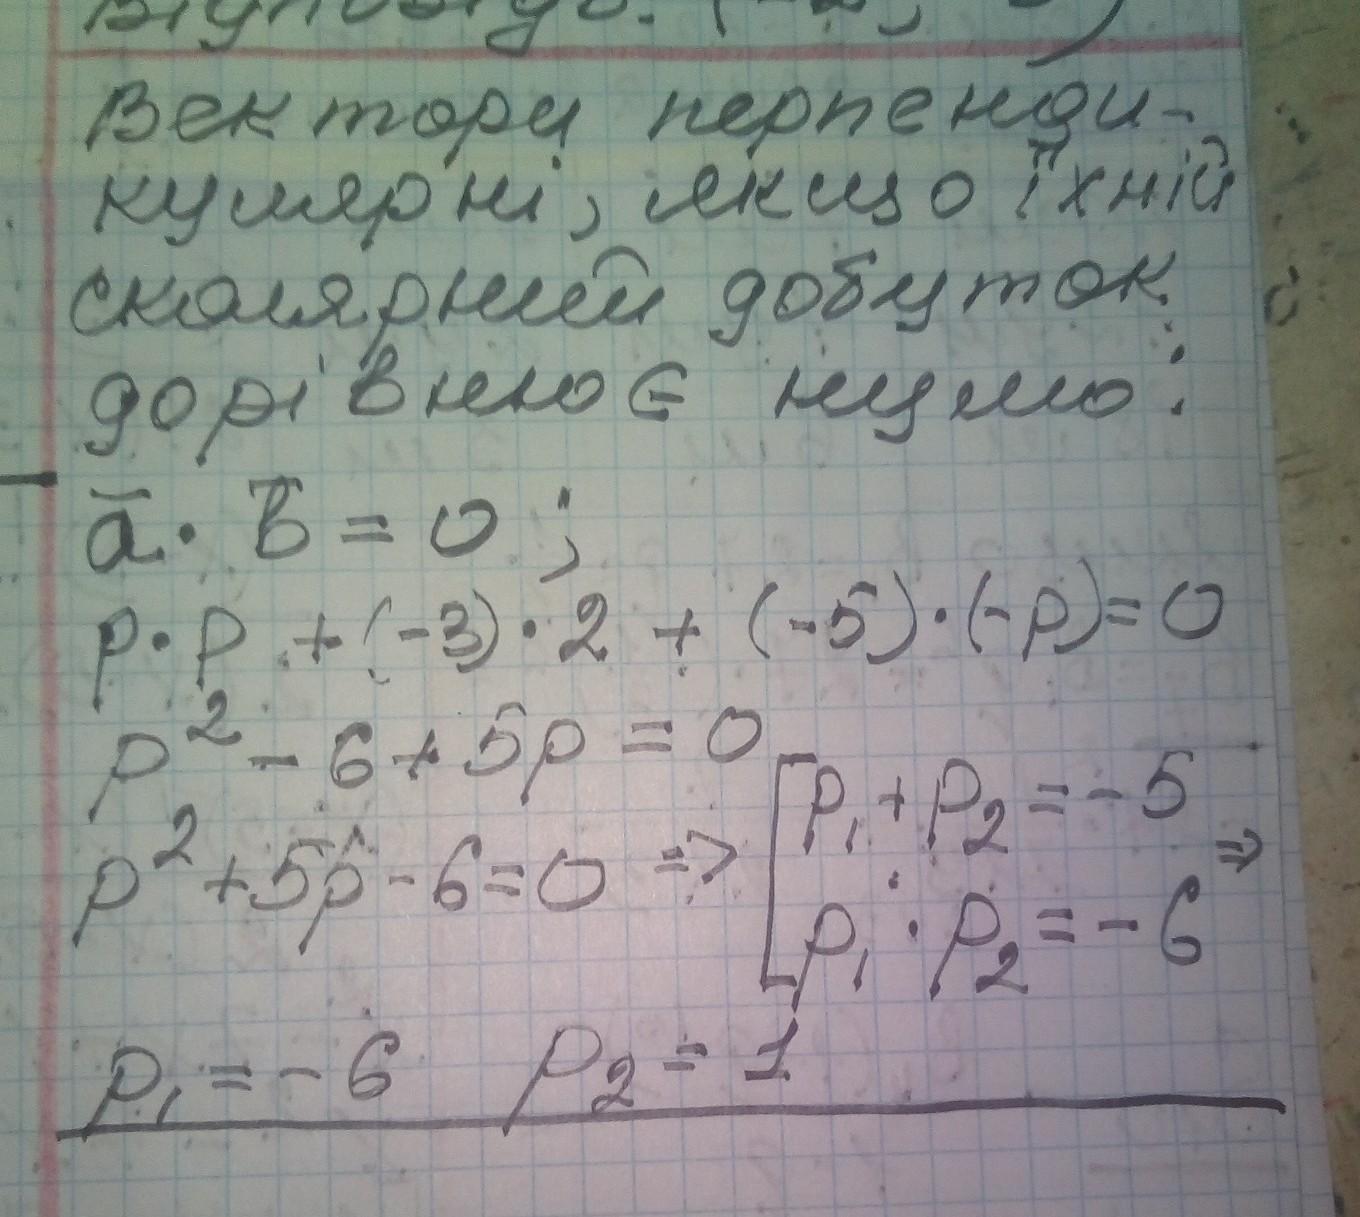 Вектори перпенди-
кулярні, якщо їхній
скалярний добуток
дорівнює нулю:
a̅ · b̅ = 0;
p·p + (-3)·2 + (-5)·(-p) = 0
p² - 6 + 5p = 0
p² + 5p - 6 = 0 => [ p₁ + p₂ = -5 =>
p₁ · p₂ = -6
p₁ = -6 p₂ = 1